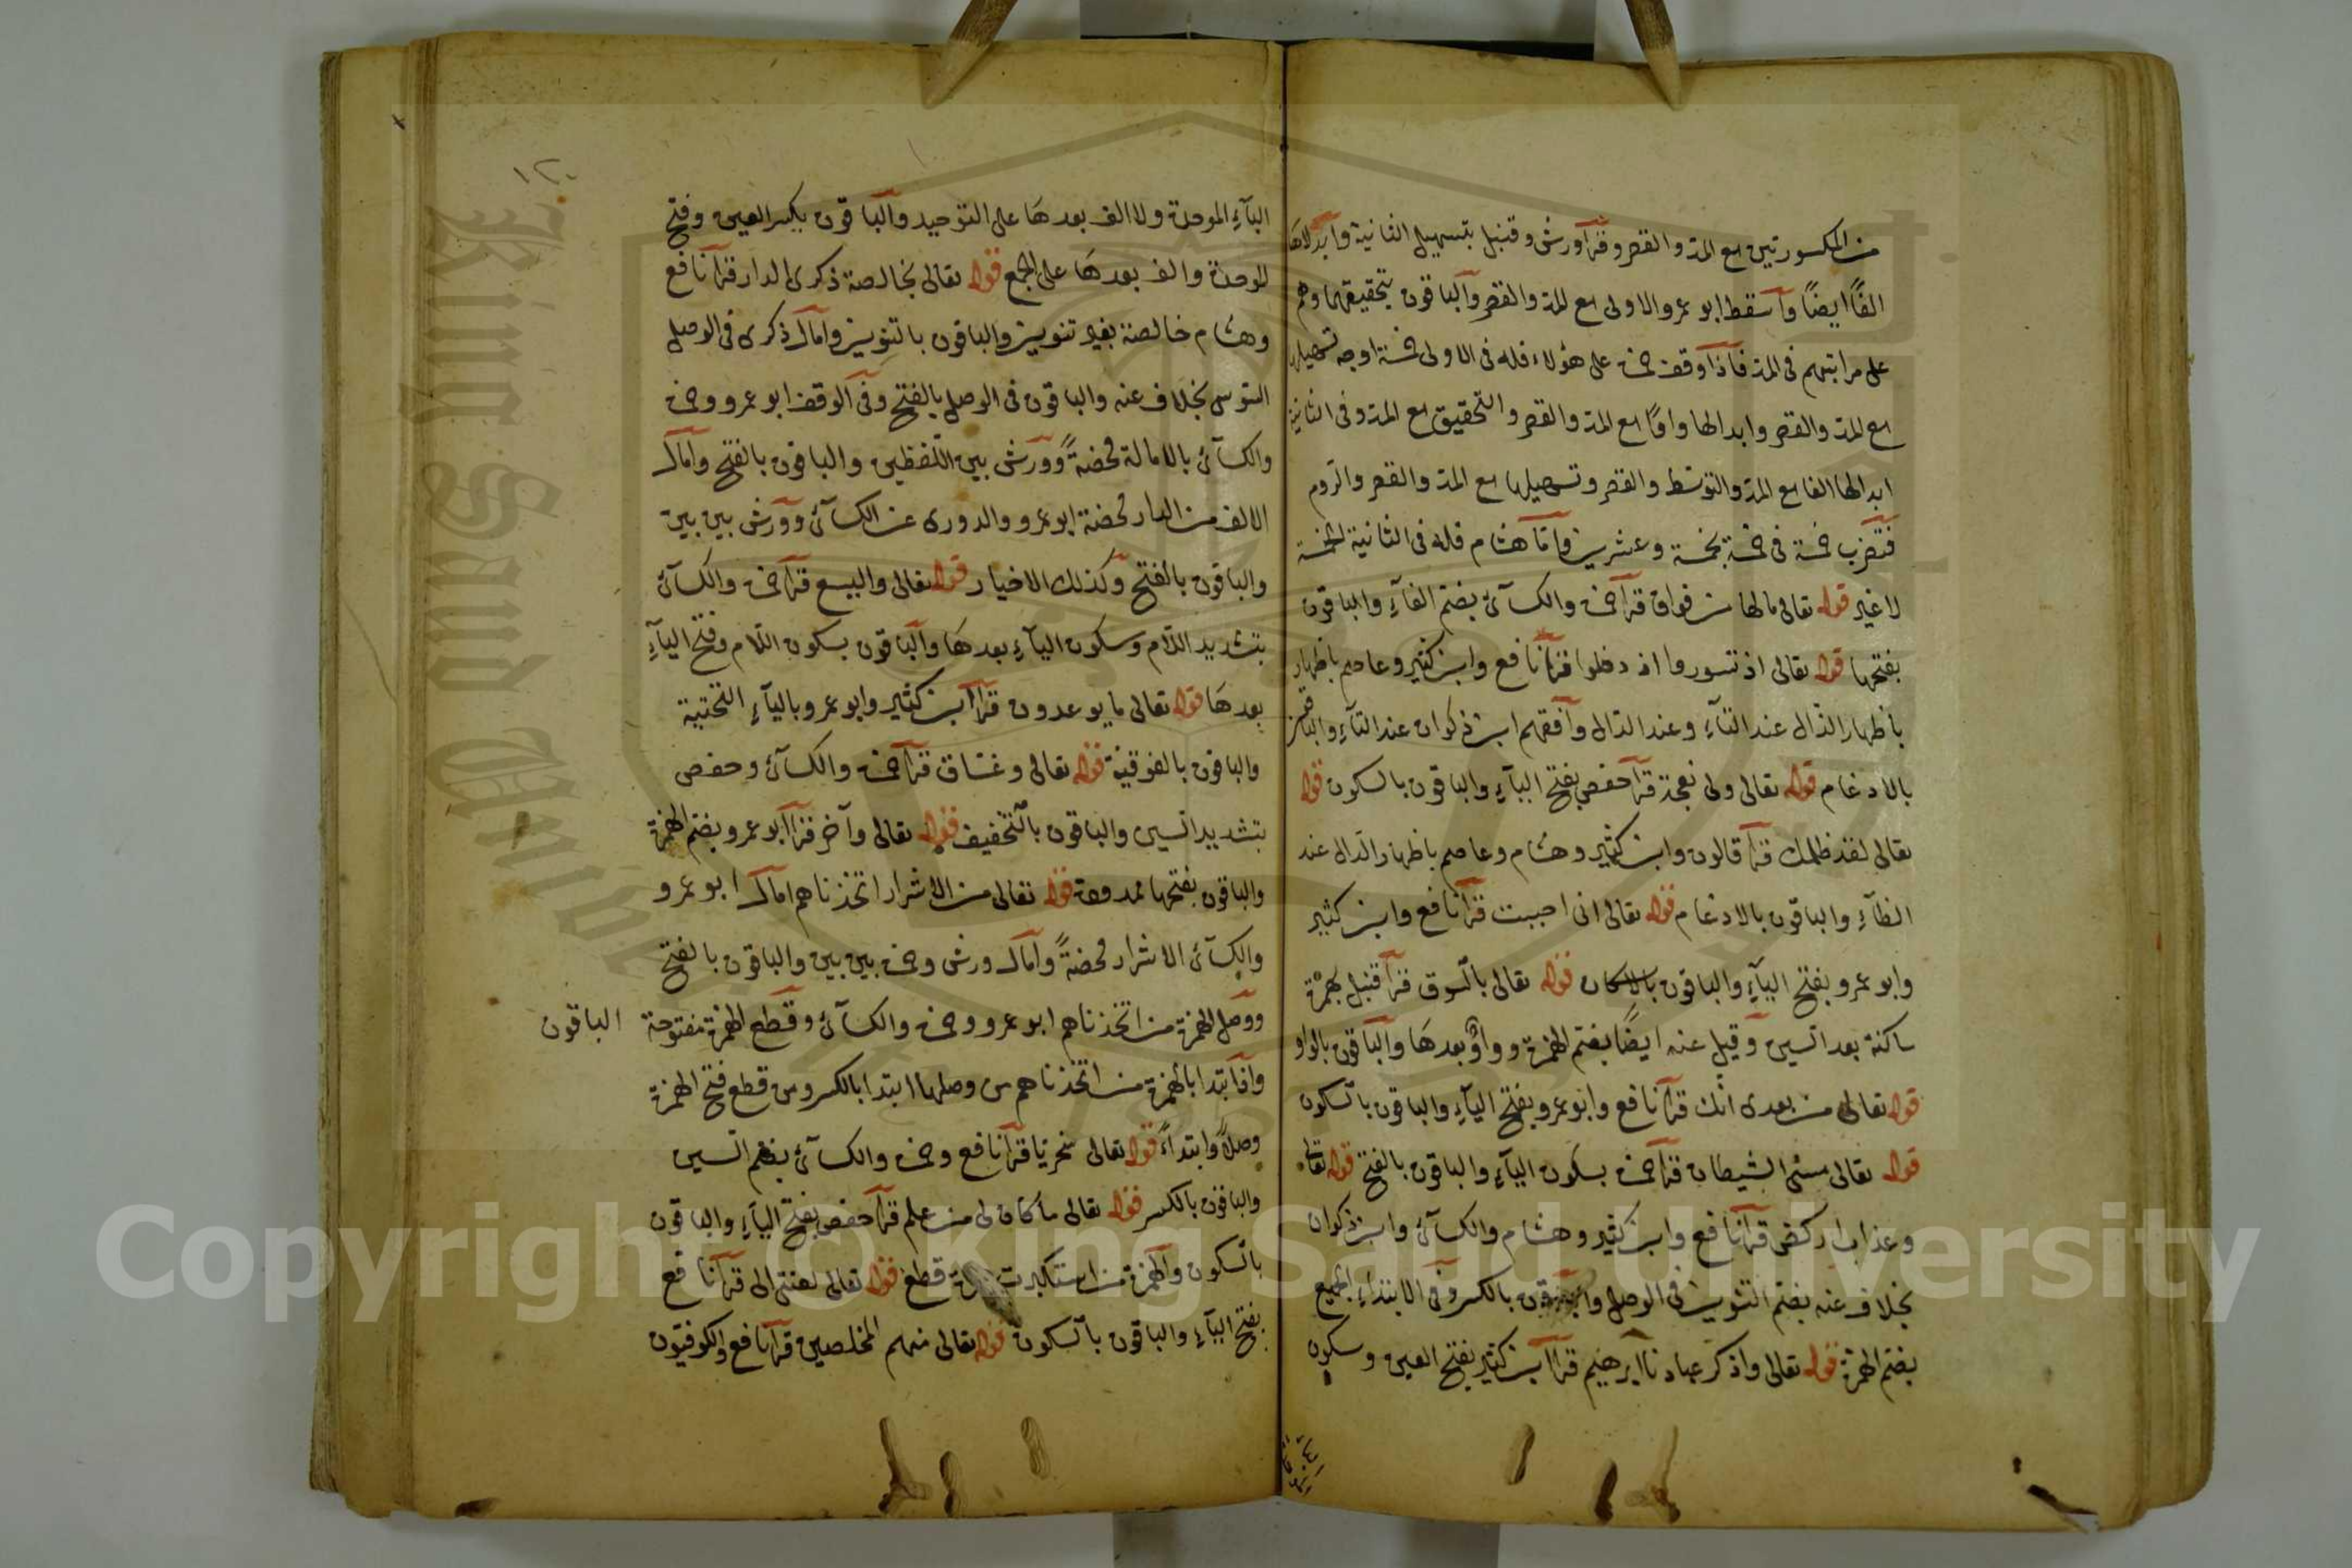 من المكسورتين مع المد والقصر وقرأ ورش وقنبل بتسهيل الثانية وأبدلاها
الفًا ايضًا وأسقط ابو عمرو الاولى مع المد والقصر والباقون بتحقيقهما وهم
على مراتبهم في المد فاذا وقف حمزة على هؤلاء فله في الاولى خمسة اوجه تسهيلها
مع المد والقصر وابدالها واوًا مع المد والقصر والتحقيق مع المد وفي الثانية
ابدالها الفا مع المد والتوسّط والقصر وتسهيلها مع المد والقصر والرّوم
فتضرب خمسة في خمسة بخمسة وعشرين وأمّا هشام فله في الثانية الخمسة
لا غير قوله تعالى مالها من فواق قرأ حمزة والكسآئي بضمّ الفآءِ والباقون
بفتحها قوله تعالى اذ تسوروا اذ دخلوا قرأ نافع وابن كثير وعاصم باظهار
باظهار الذّال عند التآءِ وعند الدّال وأفقهم ابن ذكوان عند التآءِ والباقون
بالادغام قوله تعالى ولى نعجة قرأ حفص بفتح اليآءِ والباقون بالسكون قوله
تعالى لقد ظلمك قرأ قالون وابن كثير وهشام وعاصم باظهار الدّال عند
الظآءِ والباقون بالادغام قوله تعالى انى احببت قرأ نافع وابن كثير
وابو عمرو بفتح اليآءِ والباقون بالاسكان قوله تعالى بالسّوق قرأ قنبل بهمزة
ساكنة بعد السين وقيل عنه ايضًا بضم الهمزة وواوٌ بعدهَا والباقون بالواو
قوله تعالى من بعدى انّك قرأ نافع وابو عمرو بفتح اليآءِ والباقون بالسّكون
قوله تعالى مسّنى الشيطان قرأ حمزة بسكون اليآءِ والباقون بالفتح قوله تعالى
وعذاب اركض قرأ نافع وابن كثير وهشام والكسآئي وابن ذكوان
بخلاف عنه بضم التنوين في الوصل والباقون بالكسر وفي الابتداءِ الجميع
بضم الهمزة قوله تعالى واذكر عبادنا ابرهيم قرأ ابن كثير بفتح العين وسكون
البآءِ الموحدة ولا الف بعدهَا على التوحيد والباقون بكسر العين وفتح
الموحدة والف بعدهَا على الجمع قوله تعالى بخالصة ذكرى الدار قرأ نافع
وهشام خالصة بغير تنوين والباقون بالتنوين وأمال ذكرى في الوصل
السّوسي بخلاف عنه والباقون في الوصل بالفتح وفي الوقف ابو عمرو وحمزة
والكسآئي بالامالة محضةً وورش بين اللّفظين والباقون بالفتح وأمال
الالف من الدار محضة ابو عمرو والدورى عن الكسآئي وورش بين بين
والباقون بالفتح وكذلك الاخيار قوله تعالى واليسع قرأ حمزة والكسآئي
بتشديد اللّام وسكون اليآءِ بعدهَا والباقون بسكون اللّام وفتح اليآءِ
بعدهَا قوله تعالى ما يوعدون قرأ ابن كثير وابو عمرو باليآءِ التحتية
والباقون بالفوقية قوله تعالى وغسّاق قرأ حمزة والكسآئي وحفص
بتشديد السين والباقون بالتّخفيف قوله تعالى وآخر قرأ ابو عمرو بضم الهمزة
والباقون بفتحها ممدودة قوله تعالى من الاشرار اتخذناهم امال ابو عمرو
والكسآئي الاشرار محضةً وأمال ورش وحمزة بين بين والباقون بالفتح
ووصل الهمزة من اتخذناهم ابو عمرو وحمزة والكسآئي وقطع الهمزة مفتوحة الباقون
واذا ابتدا بالهمزة من اتّخذناهم من وصلها ابتدا بالكسر ومن قطع فتح الهمزة
وصلًا وابتداءً قوله تعالى سخريًا قرأ نافع وحمزة والكسآئي بضم السين
والباقون بالكسر قوله تعالى ما كان لى من علم قرأ حفص بفتح اليآءِ والباقون
بالسّكون والهمزة من استكبرت قطع قوله تعالى لعنتى الى قرأ نافع
بفتح اليآءِ والباقون بالسّكون قوله تعالى منهم المخلصين قرأ نافع والكوفيّون
١٢٠
Copyright © King Saud University
King Saud University